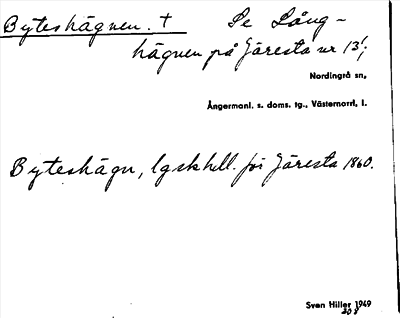 Byteshägnen. † Se Lång-
hägnen på Järesta nr 13¹;
Nordingrå sn,
Ångermanl. s. doms. tg., Västernorrl. l.
Byteshägn, lgskhll. för Järesta 1860.
Sven Hiller 1949
208